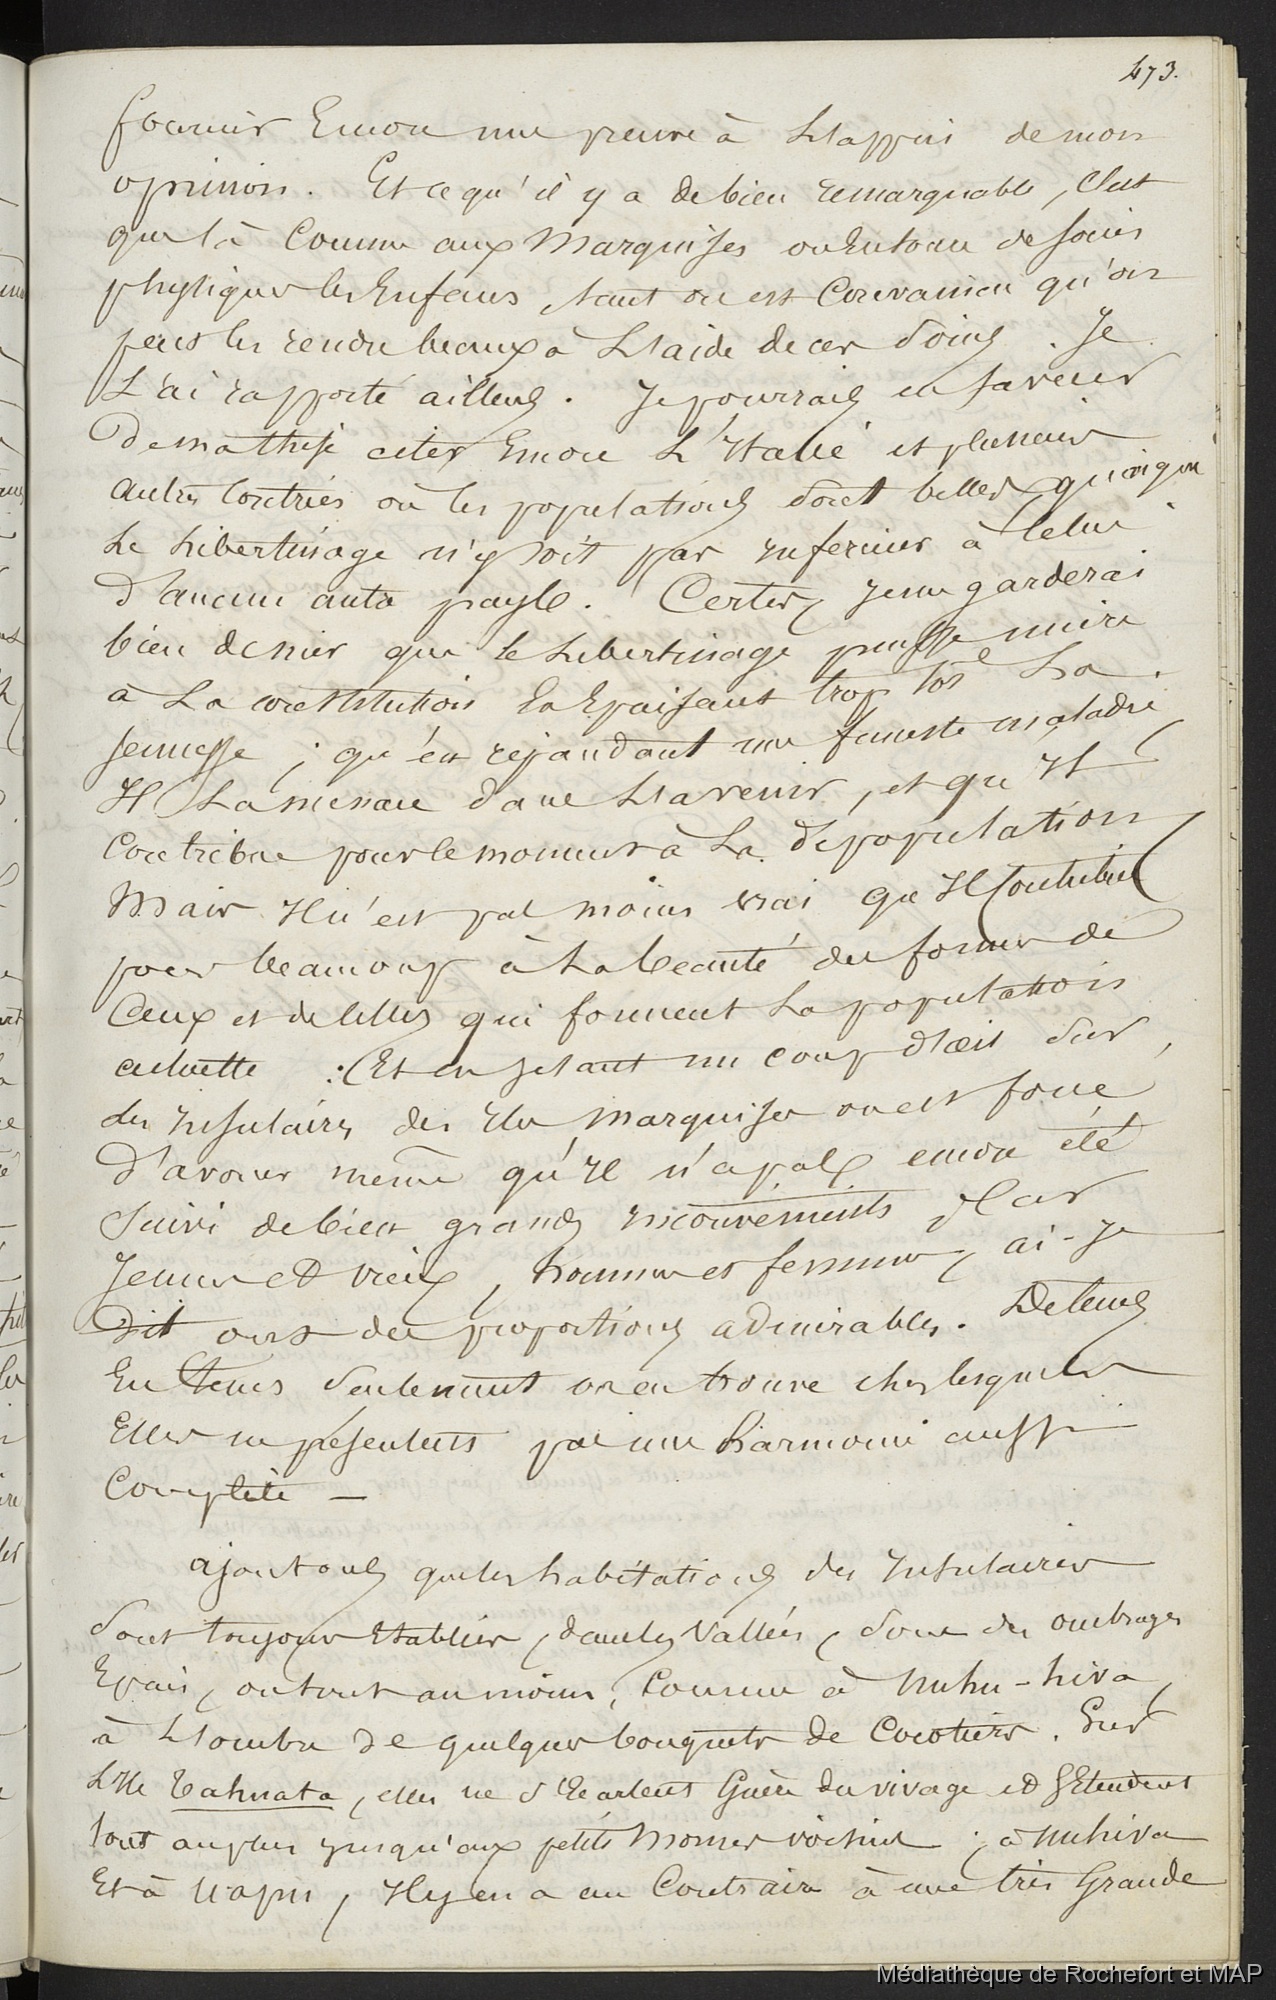 473.
fournir Encore une preuve à L'appui de mon
opinion. Et ce qu'il y a de bien remarquable, C'est
que là Comme aux Marquises on Entoure de soins
physiques les Enfans, tant on est Convaincu qu'on
peut les rendre beaux à L'aide de ces soins. Je
L'ai rapporté ailleurs. Je pourrais en faveur
De ma thèse citer Encore L'Italie et plusieurs
autres Contrées où les populations sont belles quoique
Le Libertinage n'y soit pas inférieur à Celui
d'aucun autre pays. Certes, je me garderai
bien de nier que le Libertinage puisse nuire
à La constitution En Epuisant trop tôt La
jeunesse ; qu'en répandant une funeste maladie,
Il La menace dans L'avenir, et qu'Il
Contribue pour le moment à La dépopulation,
Mais Il n'est pas moins vrai qu'Il Contribue
pour beaucoup à La beauté des formes de
Ceux et de Celles qui forment La population
actuelle : Et en jetant un coup d'œil sur
les Insulaires des Iles Marquises on est forcé
D'avouer même qu'Il n'a pas encore été
suivi de bien grands inconvénients Car
Jeunes et vieux, hommes et femmes, ai-je
Dit ont des proportions admirables. De Loin
En Loin seulement on en trouve chez lesquels
Elles ne présentent pas une harmonie aussi
Complète —
ajoutons que les habitations des Insulaires
sont toujours Etablies, dans les Vallées, sous des ombrages
Epais, ou tout au moins, Comme à Nuhu-hiva,
à L'ombre de quelques bouquets de Cocotiers. Sur
L'Ile Tahuata, elles ne s'Ecartent Guère du rivage et s'Etendent
tout au plus jusqu'aux petits Mornes voisins ; à Nuhiva
Et à Uapu, Il y en a au Contraire à une très Grande
Médiathèque de Rochefort et MAP